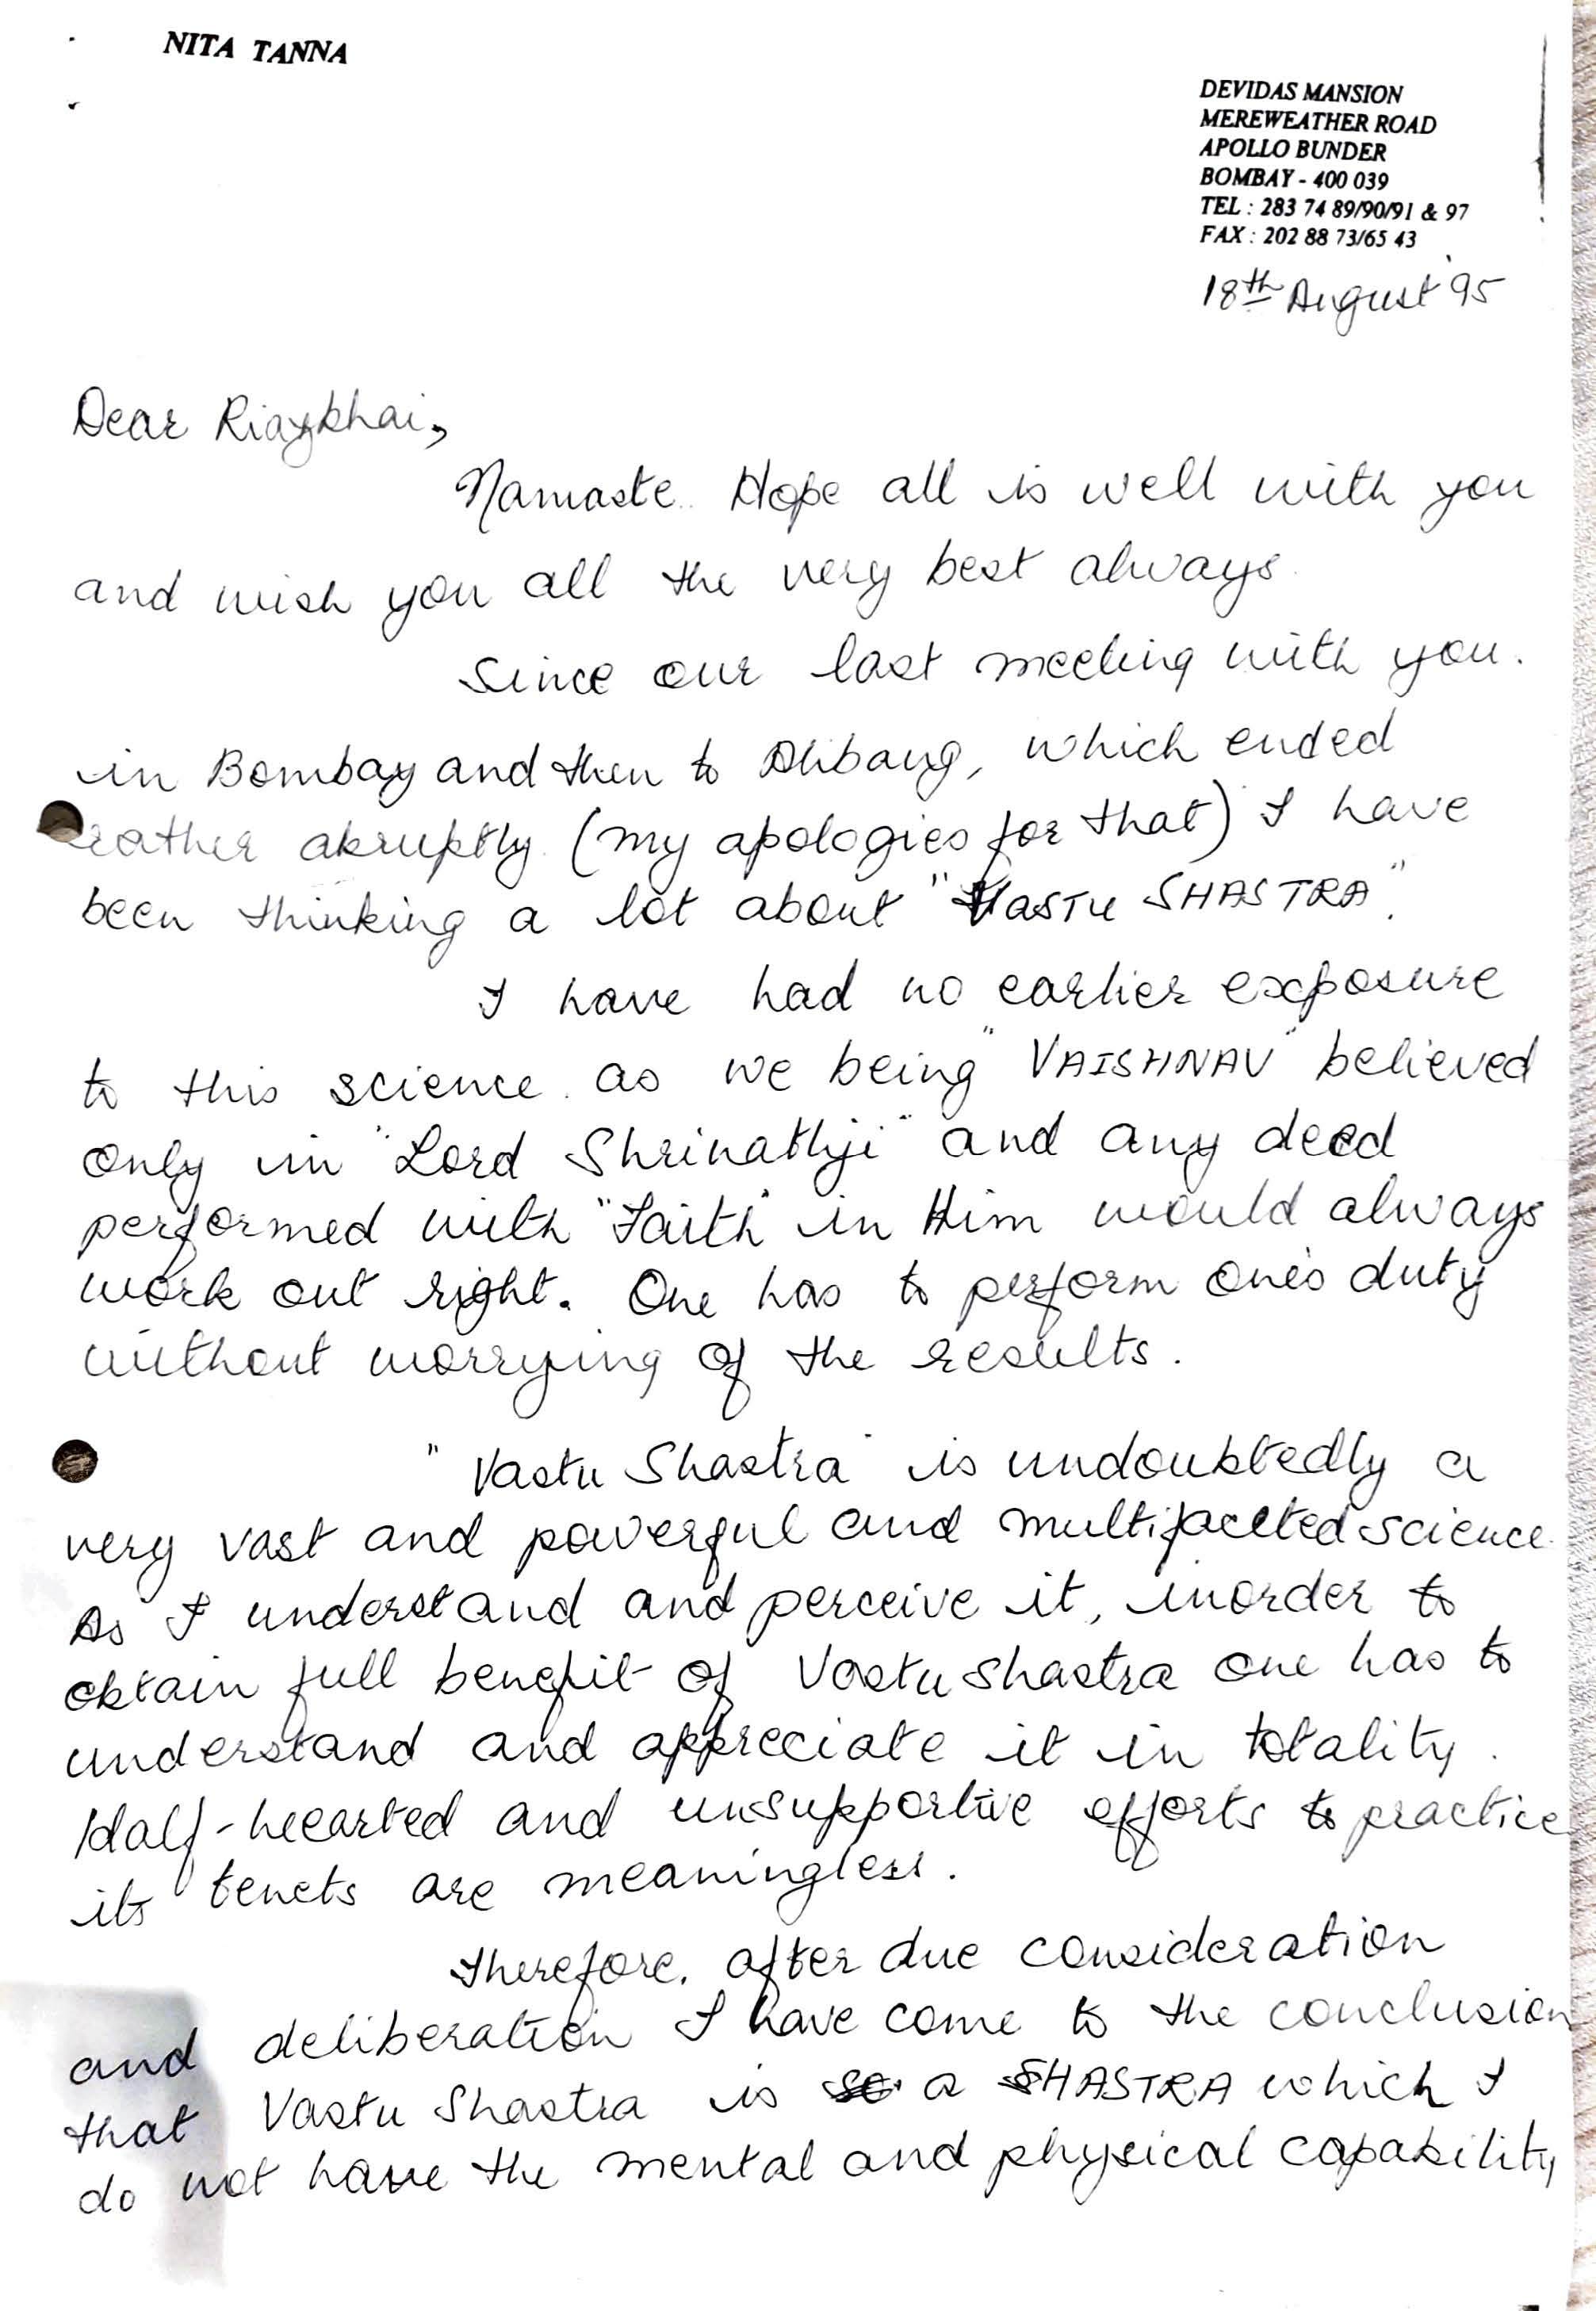 NITA TANNA
DEVIDAS MANSION
MEREWEATHER ROAD
APOLLO BUNDER
BOMBAY - 400 039
TEL : 283 74 89/90/91 & 97
FAX : 202 88 73/65 43
18th August '95
Dear
Namaste. Hope all is well with you
and wish you all the very best always.
Since our last meeting with you.
in Bombay and then to Alibaug, which ended
rather abruptly. (my apologies for that) I have
been thinking a lot about "VASTU SHASTRA".
I have had no earlier exposure
to this science. as we being "VAISHNAV" believed
only in "Lord Shrinathji" and any deed
performed with "Faith" in Him would always
work out right. One has to perform one's duty
without worrying of the results.
"Vastu Shastra" is undoubtedly a
very vast and powerful and multifaceted science.
As I understand and perceive it, inorder to
obtain full benefit of Vastu Shastra one has to
understand and appreciate it in totality.
Half-hearted and unsupportive efforts to practice
its tenets are meaningless.
Therefore, after due consideration
and deliberation I have come to the conclusion
that Vastu Shastra is a SHASTRA which I
do not have the mental and physical capability